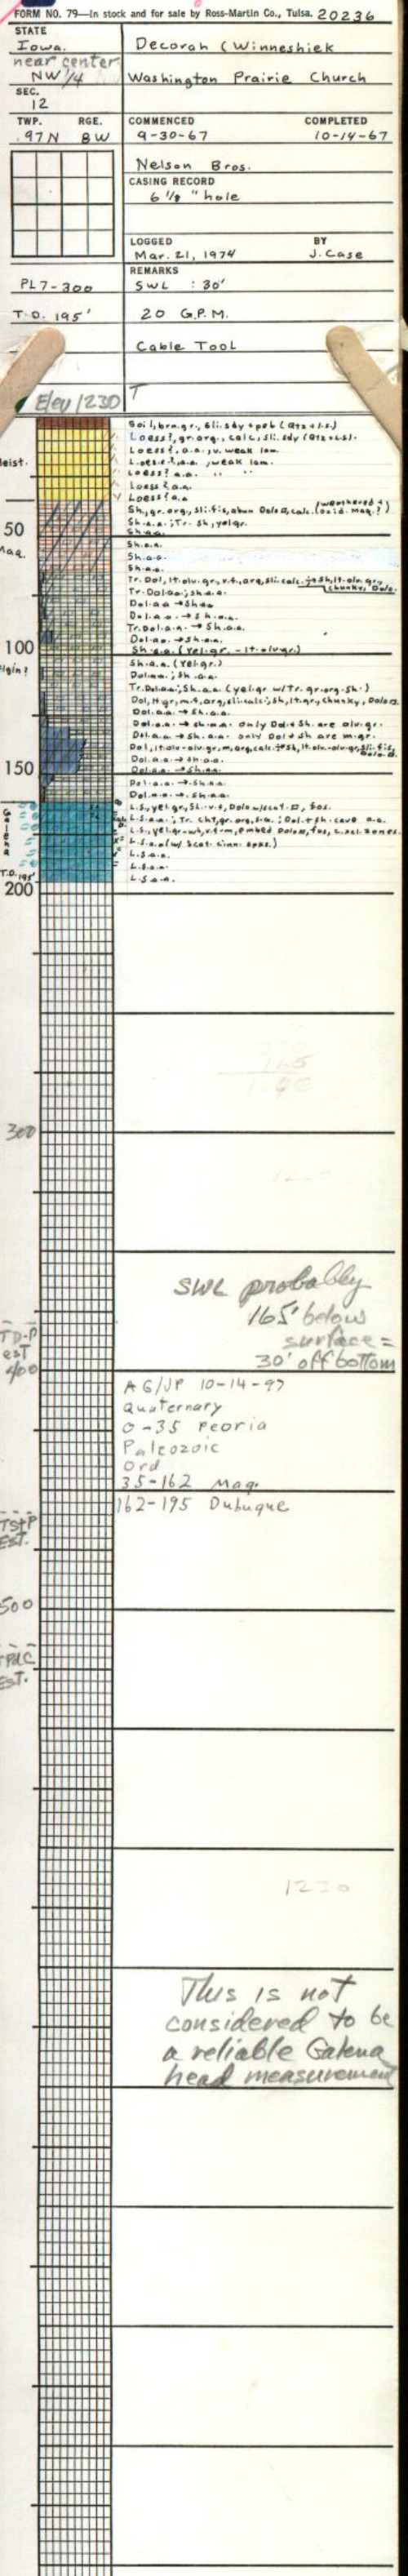 FORM NO. 79—In stock and for sale by Ross-Martin Co., Tulsa. 20236
STATE
Iowa.
Decorah (Winneshiek
near center
NW 1/4
Washington Prairie Church
SEC.
12
TWP. RGE.
97N 8W
COMMENCED COMPLETED
9-30-67 10-14-67
Nelson Bros.
CASING RECORD
6 1/8 " hole
LOGGED BY
Mar. 21, 1974 J. Case
REMARKS
PL7-300
SWL : 30'
T.D. 195'
20 G.P.M.
Cable Tool
Elev 1230
T
Soil, brn.gr., sli. sdy + peb (Qtz + l.s.)
Loess?, gr. org., calc, sli. sdy (Qtz + L.s.).
Loess?, a.a., v. weak lam.
Loess?, a.a., weak lam.
Loess? a.a. " "
Loess? a.a.
Loess? a.a
leist.
Sh., gr. org., sli. fis, abun Dolo, calc. (weathered + oxid. Maq.?)
Sh.a.a.; Tr. sh, yel gr.
Sh.a.a.
50
Sh.a.a.
Maq.
Sh.a.a.
Sh.a.a.
Tr. Dol, lt. olv. gr., v.f., arg, sli. calc. → sh, lt. olv. gr., chunky, Dolo.
Tr. Dol.a.a; sh.a.a.
Dol.a.a → Sh.a.a
Dol.a.a. → sh.a.a.
Tr. Dol.a.a. → Sh.a.a.
Dol.a.a. → sh.a.a.
Sh.a.a. (Yel.gr. - lt. olv.gr.)
100
Sh.a.a. (Yel.gr.)
Elgin?
Dol.a.a.; Sh.a.a.
Tr. Dol.a.a.; Sh.a.a. (yel.gr w/tr. gr. org. sh.)
Dol, lt gr, m.f, arg, sli. calc.; sh, lt. gr., chunky, Dolo.
Dol.a.a. → sh.a.a.
Dol.a.a. → sh.a.a. only Dol + Sh are olv. gr.
Dol.a.a → sh.a.a. only Dol + sh are m.gr.
Dol, lt. olv - olv. gr, m, arg, calc. → sh, lt. olv - olv. gr, sli. fis, Dolo.
Dol.a.a → sh.a.a.
Dol.a.a. → Sh.a.a.
150
Dol.a.a. → sh.a.a.
Dol.a.a. → sh.a.a.
L.S., yel gr, sl. v.f, Dolo w/scat., fos.
Galena
L.S.a.a.; Tr. cht, gr. org, s.a.; Dol. + sh. cave a.a.
L.S., yel. gr - wh, v.f - m, embed Dolo, fos, c. xcl. zones.
L.S.a.a (w/ scat. cinn. spks.)
L.S.a.a.
L.S.a.a.
T.D. 195'
L.S.a.a.
200
300
SWL probably
165' below
surface =
30' off bottom
TD-P
est
400
AG/JP 10-14-97
Quaternary
0-35 Peoria
Paleozoic
Ord
35-162 Maq.
162-195 Dubuque
TStP
EST.
500
TPdC
EST.
1230
This is not
considered to be
a reliable Galena
head measurement